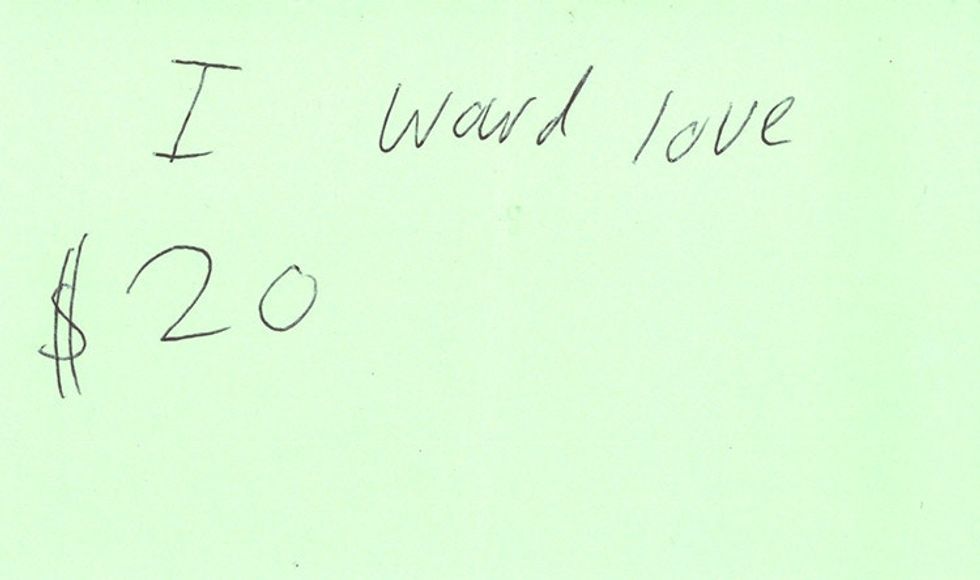 I ward love
$20